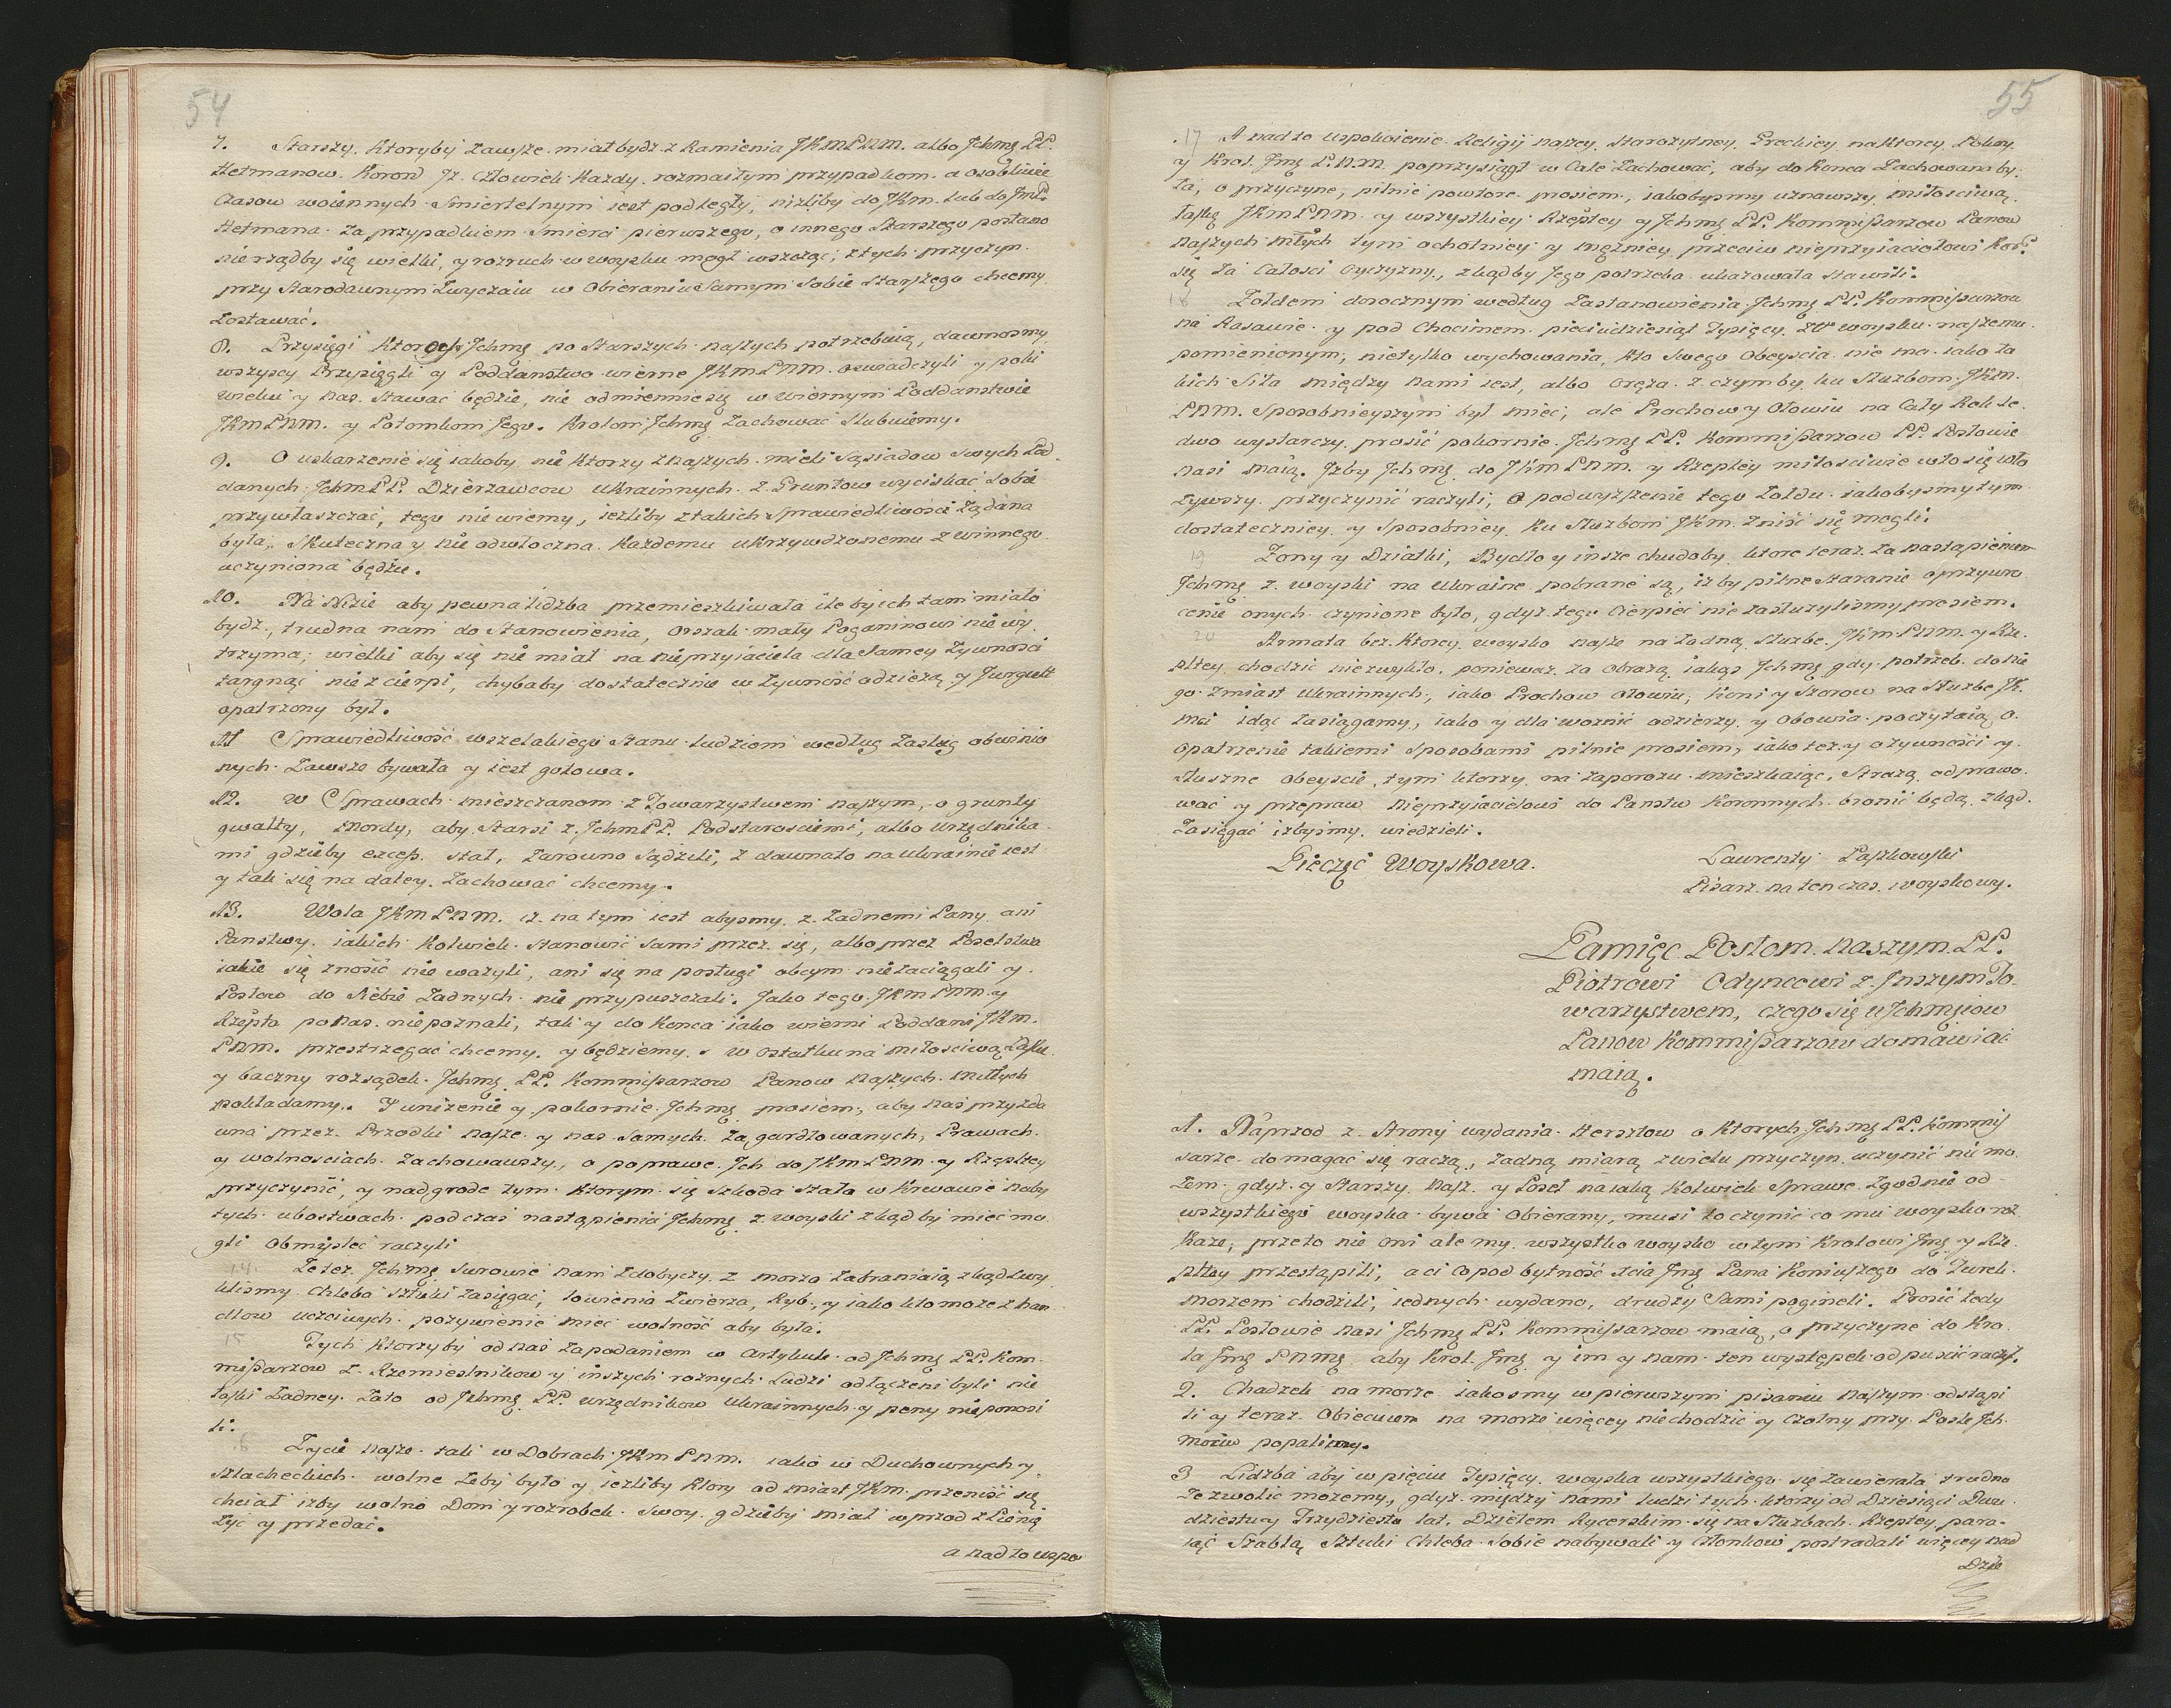 54
7. Starszy. Ktoryby zawsze. miał bydz. z Ramienia JKmPNM. albo Jchmę PP.
Hetmanow. Koron Jz. człowiek Kazdy. rozmaitym przypadkom. a osobliwie
czasow woiennych. Smiertelnym iest podległy, niżliby do JKm. lub do Jmę
Hetmana. za przypadkiem Smierci pierwszego, o innego Starszego posłano
nierządby się wielki, y rozruch w woysku mogł wszcząc; z tych przyczyn.
przy Starodawnym Zwyczaiu w Obieraniu Samym Sobie Starszego chcemy
zostawać.
8. Przysięgi Ktorey Jchmę po Starszych naszych potrzebuią, dawnosmy
wszyscy Przysięgli y Poddanstwo wierne JKmPNM. oswiadczyli y poki
wieku y nas. Stawać będzie, nie odmiennie się w wiernym Poddanstwie
JKmPNM. y Potomkom Jego. Krolom Jchmę Zachować slubuiemy.
9. O uskarzenie się iakoby niektorzy z naszych mieli Sąsiadow swych Pod
danych. JchmPP. Dzierzawcow Ukrainnych. z Gruntow wyciskać sobie
przywłaszczać, tego nie wiemy, iezliby z takich Sprawiedliwość Ządana
była, Skuteczna y nie odwłoczna. Kazdemu ukrzywdzonemu z winnego
uczyniona będzie.
10. Na Nizie aby pewna lidzba przemieszkiwała ileby ich tam miało
bydz., trudna nam do Stanowienia, Orszak mały Poganinowi nie wy
trzyma; wielki aby się nie miał na nieprzyiaciela dla Samey Zywnosci
targnąć nie zcierpi, chybaby dostatecznie w Zywność odziezą y Jurgielt
opatrzony był.
11 Sprawiedliwość wszelakiego Stanu ludziom według Zasług obwinio
nych. Zawsze bywała y iest gotowa.
12. w Sprawach mieszczanom z Towarzystwem naszym, o grunty
gwałty, mordy, aby Starsi z JchmPP. Podstarosciemi, albo urzędnika
mi gdzieby exces. stał, Zarowno Sądzili, z dawna to na Ukrainie iest
y tak się na daley. Zachować chcemy.
13. Wola JKmPNM. iz na tym iest abysmy. z Zadnemi Pany ani
Panstwy. iakich Kolwiek. Stanowić sami przez się, albo przez Poselstwa
iakie się znosić nie wazyli, ani się na posługi obcym nie zaciągali y.
Posłow do Siebie Zadnych. nie przypuszczali. Jako tego JKmPNM. y
Rzepta po nas. nie poznali, tak y do Konca iako wierni Poddani JKm.
PNM. przestrzegać chcemy. y będziemy. w ostatku na miłosciwą Łaskę
y baczny rozsądek. Jchmę PP. Kommissarzow Panow naszych Miłłych
pokładamy. Y unizenie y pokornie Jchmę prosiem, aby nas przy zda
wna przez. Przodki nasze y nas Samych. zagardłowanych, Prawach.
y wolnosciach. Zachowawszy., o poprawe. Jch do JKmPNM. y Rzepltey
przyczynić, y nadgrode tym. Ktorym się szkoda stała w Krwawie naby
tych. ubostwach. podczas nastąpienia Jchmę z woyski zkądby mieć mo
gli obmyslec raczyli
14. Ze tez. Jchmę Surowie nam zdobyczy. z morza Zabraniaią zkąd zwy
klismy Chleba Sztuki Zasięgać, łowienia Zwierza, Ryb, y iako kto moze z han
dlow uczciwych. pozywienie mieć wolność aby była.
15 Tych Ktorzyby od nas za podaniem w Artykule. od Jchmę PP. Kom
missarzow z. Rzemieslnikow y inszych roznych Ludzi odłączeni byli nie
łaski Zadney. Zato od Jchmę. PP. urzędnikow Ukrainnych y peny nie ponosi
li.
16 Zycie nasze. tak w Dobrach JKmPNM. iako w Duchownych y
Szlacheckich. wolne Zeby było y iezliby Ktory od miast JKm. przenieść się
chciał izby wolno Dom y rozrobek. Swoy. gdzieby miał wprzod z Pieną
Zyc y przedać.
a nadto uspo
55
17 A nadto uspokoienie Religij naszey Starozytney Greckiey, na Ktorey Pokoy.
y Krol. Jmę P.N.M. poprzysiągł w Cale Zachować, aby do Konca Zachowana by.
ła, o przyczyne, pilnie powtore. prosiem, iakobysmy uznawszy miłosciwą.
łaskę JKmPNM. y wszystkiey Rzepltey y Jchmę PP. Kommissarzow Panow
naszych Młłych tym ochotniey y męzniey przeciw nieprzyiaciołowi Kor.
się za Całosci oyczyzny., zkądby Jego potrzeba ukazowała stawili.
18 Zołdem dorocznym według Zastanowienia Jchmę PP. Kommissarzow
na Rasawie. y pod Chocimem. piecudziesiąt Tysięcy. Złł woysku naszemu.
pomienionym; nietylko wychowania, kto Swego Obeyscia nie ma. iako ta
kich Siła między nami iest, albo oręza. z czymby ku Służbom. JKm.
PNM. Sposobnieyszym był mieć, ale Prochow y Ołowiu na Cały Rok le.
dwo wystarczy. prosić pokornie. Jchmę PP. Kommissarzow PP. Posłowie
nasi maią. Jzby Jchmę do JKmPNM. y Rzepltey miłosciwie w to się wło
zywszy. przyczynić raczyli, o podwyzszenie tego Zołdu. iakobysmy tym.
dostateczniey y Sposobniey. Ku Służbom JKm. Znisć się mogli.
19 Zony y Dziatki, Bydło y insze chudoby. ktore teraz. za nastąpieniem
Jchmę z. woyski na Ukraine pobrane są, iz by pilne staranie o przywro
cenie onych. czynione było, gdyz tego Cierpieć nie zasłuzylismy prosiem.
20 Armata bez. Ktorey. woysko nasze na Zadną Słuzbe. JKmPNM. y Rze.
pltey chodzić niezwykło. poniewaz. za Obrazą iakąs Jchmę gdy potrzeb. do nie
go z miast Ukrainnych., iako Prochow Ołowiu, Koni y Szorow na Słuzbe JK.
Mci idąc zasiągamy, iako y dla woznic odziezy. y Obowia. poczytaią, o.
opatrzenie takiemi Sposobami pilnie prosiem, iako tez. y o zywności y.
słuszne obeyscie, tym ktorzy. na Zaporozu. mieszkaiąc, Strazą odprawo.
wać y przepraw Nieprzyiacielowi do Panstw Koronnych. bronić będą. zkąd.
Zasięgać izbysmy. wiedzieli.
Pieczęć Woyskowa.
Laurenty Paszkowski
Pisarz. na ten czas. woyskowy.
Pamięc. Posłom. Naszym. PP.
Piotrowi Odyncowi z. Jnszym To.
warzystwem, czego się u Jchmęiow
Panow Kommissarzow domawiac
maią.
1. Náprzod z. Strony wydania. Hersztow o Ktorych Jchmę PP. Kommis
sarze. domagać się raczą., Zadną miarą z wielu przyczyn. uczynić nie mo.
Zem. gdyz. y Starszy. Nasz. y Poseł na iaką Kolwiek Sprawe. Zgodnie od
wszystkiego woyska. bywa Obierany, musi to czynić co mu woysko roz.
Kaze, przeto nie oni ale my. wszystko woysko w tym Krolowi Jmę y Rze.
pltey przestąpili, a ci co pod bytność scia Jmę Pana Koniuszego do Turek.
morzem chodzili, iednych. wydano, drudzy Sami pogineli. Prosić tedy
PP. Posłowie Nasi Jchmę PP. Kommissarzow maią, o przyczyne do Kro.
la Jmę PNMę. aby Krol. Jmę y im y nam. ten występek. odpuscić raczył.
2. Chadzek na morze iakosmy w pierwszym pisaniu naszym odstąpi
li y teraz. Obiecuiem na morze więcey nie chodzić y Czołny przy. Posle Jch
mosciow popalimy.
3 Lidzba aby w pięciu Tysięcy. woyska wszystkiego się zawierała trudno
Zezwolic mozemy, gdyz. między nami ludzi tych. ktorzy od Dziesiąci Dwu
dziestu y Trzydziestu lat. Dziełem Rycerskim. się na Słuzbach. Rzepltey para-
iąć Szablą Sztuki Chleba sobie nabywali y członkow postradali więcey nad
Dzie